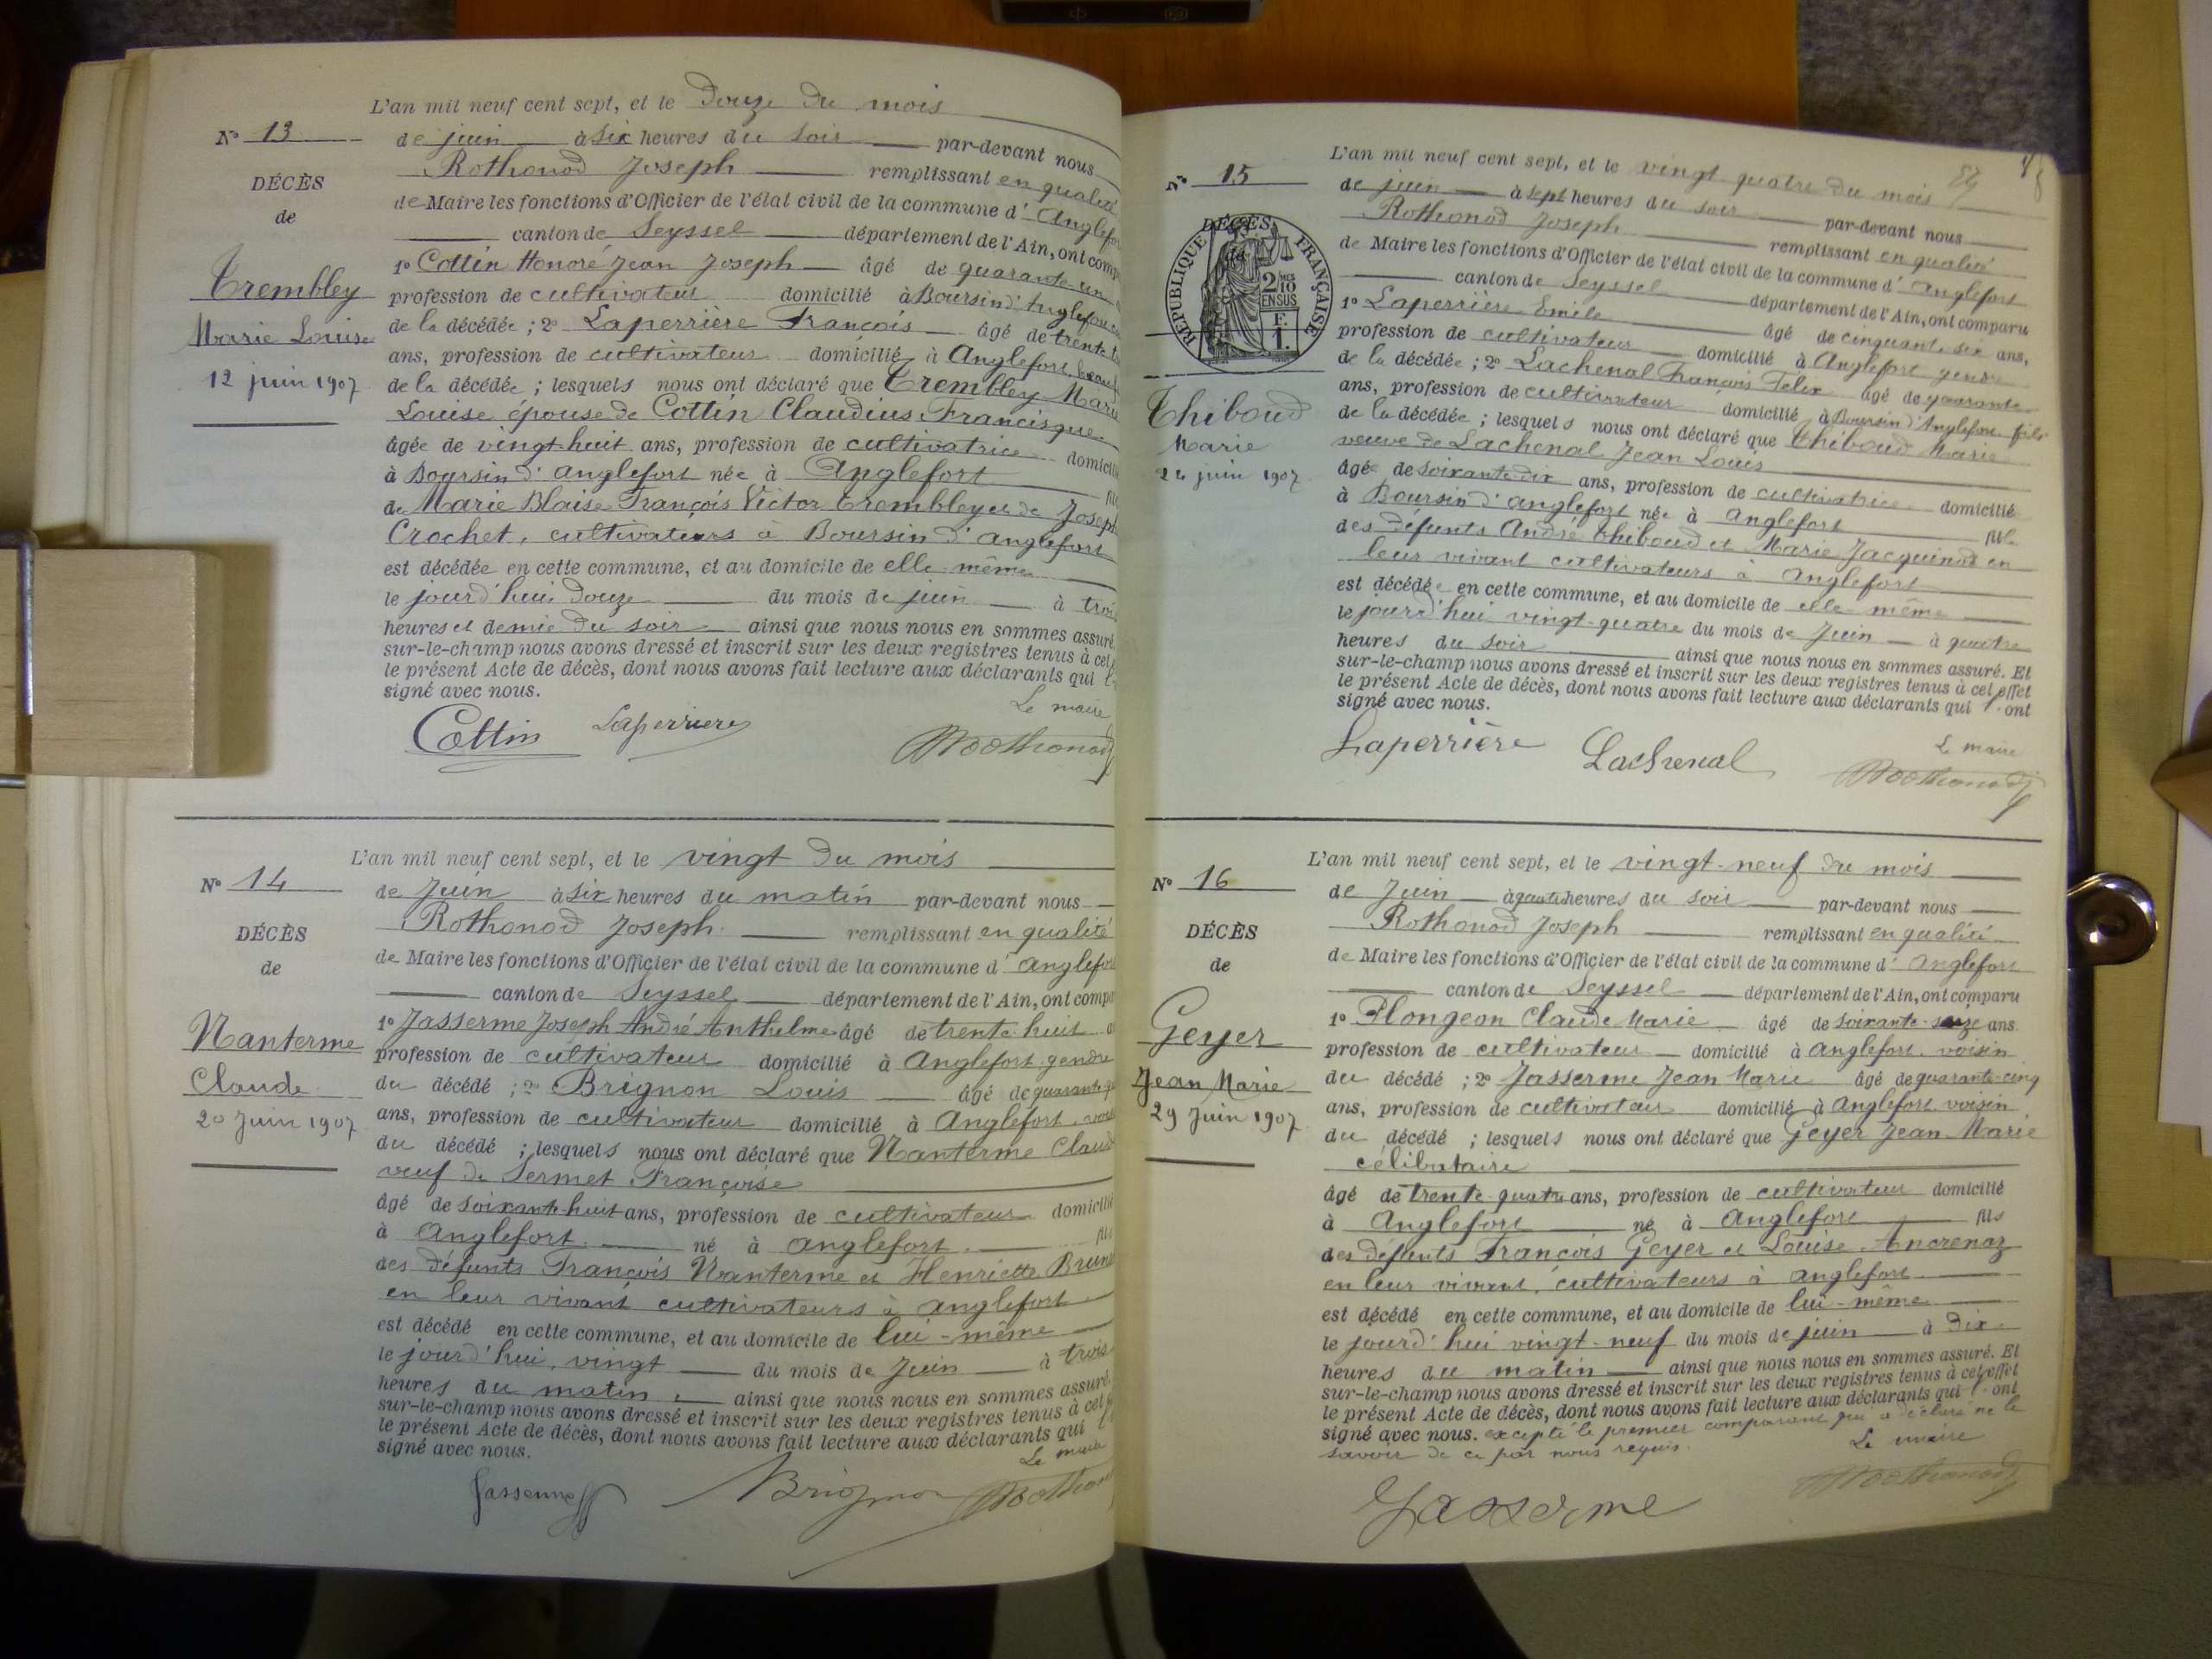 N° 13
DÉCÈS
de
Trembley
Marie Louise
12 juin 1907
L'an mil neuf cent sept, et le douze du mois
de juin à six heures du soir par-devant nous
Rothonod Joseph remplissant en qualité
de Maire les fonctions d'Officier de l'état civil de la commune d' Anglefor
canton de Seyssel département de l'Ain, ont comp
1° Cottin Honoré Jean Joseph âgé de quarante-un
profession de cultivateur domicilié à Boursin d'Anglefort
de la décédée ; 2° Laperrière François âgé de trente
ans, profession de cultivateur domicilié à Anglefort
de la décédée ; lesquels nous ont déclaré que Trembley Marie
Louise épouse de Cottin Claudius Francisque
âgée de vingt-huit ans, profession de cultivatrice domicilié
à Boursin d'anglefort née à Anglefort
de Marie Blaise François Victor Trembley et de Joseph
Crochet, cultivateurs à Boursin d'anglefort
est décédée en cette commune, et au domicile de elle même
le jourd'hui douze du mois de juin à trois
heures et demie du soir ainsi que nous nous en sommes assuré.
sur-le-champ nous avons dressé et inscrit sur les deux registres tenus à cet
le présent Acte de décès, dont nous avons fait lecture aux déclarants qui
signé avec nous.
Le maire
Cottin Laperriere Rothonod
N° 14
DÉCÈS
de
Nanterme
Claude
20 Juin 1907
L'an mil neuf cent sept, et le vingt du mois
de Juin à six heures du matin par-devant nous
Rothonod Joseph remplissant en qualité
de Maire les fonctions d'Officier de l'état civil de la commune d' Anglefor
canton de Seyssel département de l'Ain, ont compa
1° Jasserme Joseph André Anthelme âgé de trente-huit
profession de cultivateur domicilié à Anglefort gendre
du décédé ; 2° Brignon Louis âgé de quarante
ans, profession de cultivateur domicilié à Anglefort
du décédé ; lesquels nous ont déclaré que Nanterme Claude
veuf de Sermet Françoise
âgé de soixante-huit ans, profession de cultivateur domicilié
à Anglefort né à anglefort fils
des défunts François Nanterme et Henriette Brun
en leur vivant cultivateurs à anglefort
est décédé en cette commune, et au domicile de lui-même
le jourd'hui vingt du mois de Juin à trois
heures du matin ainsi que nous nous en sommes assuré.
sur-le-champ nous avons dressé et inscrit sur les deux registres tenus à cet
le présent Acte de décès, dont nous avons fait lecture aux déclarants qui
signé avec nous.
Le maire
Jasserme Brignon Rothonod
84
N° 15
DÉCÈS
de
RÉPUBLIQUE FRANÇAISE
2/10 EN SUS
F. 1.
Thiboud
Marie
24 juin 1907
L'an mil neuf cent sept, et le vingt-quatre du mois
de juin à sept heures du soir par-devant nous
Rothonod Joseph remplissant en qualité
de Maire les fonctions d'Officier de l'état civil de la commune d' Anglefort
canton de Seyssel département de l'Ain, ont comparu
1° Laperrière Emile âgé de cinquante-six ans,
profession de cultivateur domicilié à Anglefort gendre
de la décédée ; 2° Lachenal François Félix âgé de quarante
ans, profession de cultivateur domicilié à Boursin d'Anglefort fils
de la décédée ; lesquels nous ont déclaré que Thiboud Marie
veuve de Lachenal Jean Louis
âgée de soixante-dix ans, profession de cultivatrice domicilié
à Boursin d'anglefort née à Anglefort fille
des défunts André Thiboud et Marie Jacquinod en
leur vivant cultivateurs à Anglefort
est décédée en cette commune, et au domicile de elle même
le jourd'hui vingt-quatre du mois de Juin à quatre
heures du soir ainsi que nous nous en sommes assuré. Et
sur-le-champ nous avons dressé et inscrit sur les deux registres tenus à cet effet
le présent Acte de décès, dont nous avons fait lecture aux déclarants qui l'ont
signé avec nous.
Le maire
Laperrière Lachenal Rothonod
N° 16
DÉCÈS
de
Geyer
Jean Marie
29 Juin 1907
L'an mil neuf cent sept, et le vingt-neuf du mois
de Juin à quatre heures du soir par-devant nous
Rothonod Joseph remplissant en qualité
de Maire les fonctions d'Officier de l'état civil de la commune d' Anglefort
canton de Seyssel département de l'Ain, ont comparu
1° Plongeon Claude Marie âgé de soixante-seize ans
profession de cultivateur domicilié à Anglefort voisin
du décédé ; 2° Jasserme Jean Marie âgé de quarante-cinq
ans, profession de cultivateur domicilié à Anglefort voisin
du décédé ; lesquels nous ont déclaré que Geyer Jean-Marie
célibataire
âgé de trente-quatre ans, profession de cultivateur domicilié
à Anglefort né à Anglefort fils
des défunts François Geyer et Louise Ancrenaz
en leur vivant cultivateurs à anglefort
est décédé en cette commune, et au domicile de lui-même
le jourd'hui vingt-neuf du mois de juin à dix
heures du matin ainsi que nous nous en sommes assuré. Et
sur-le-champ nous avons dressé et inscrit sur les deux registres tenus à cet effet
le présent Acte de décès, dont nous avons fait lecture aux déclarants qui l'ont
signé avec nous. excepté le premier comparant qui a déclaré ne le
savoir de ce par nous requis.
Le maire
Jasserme Rothonod